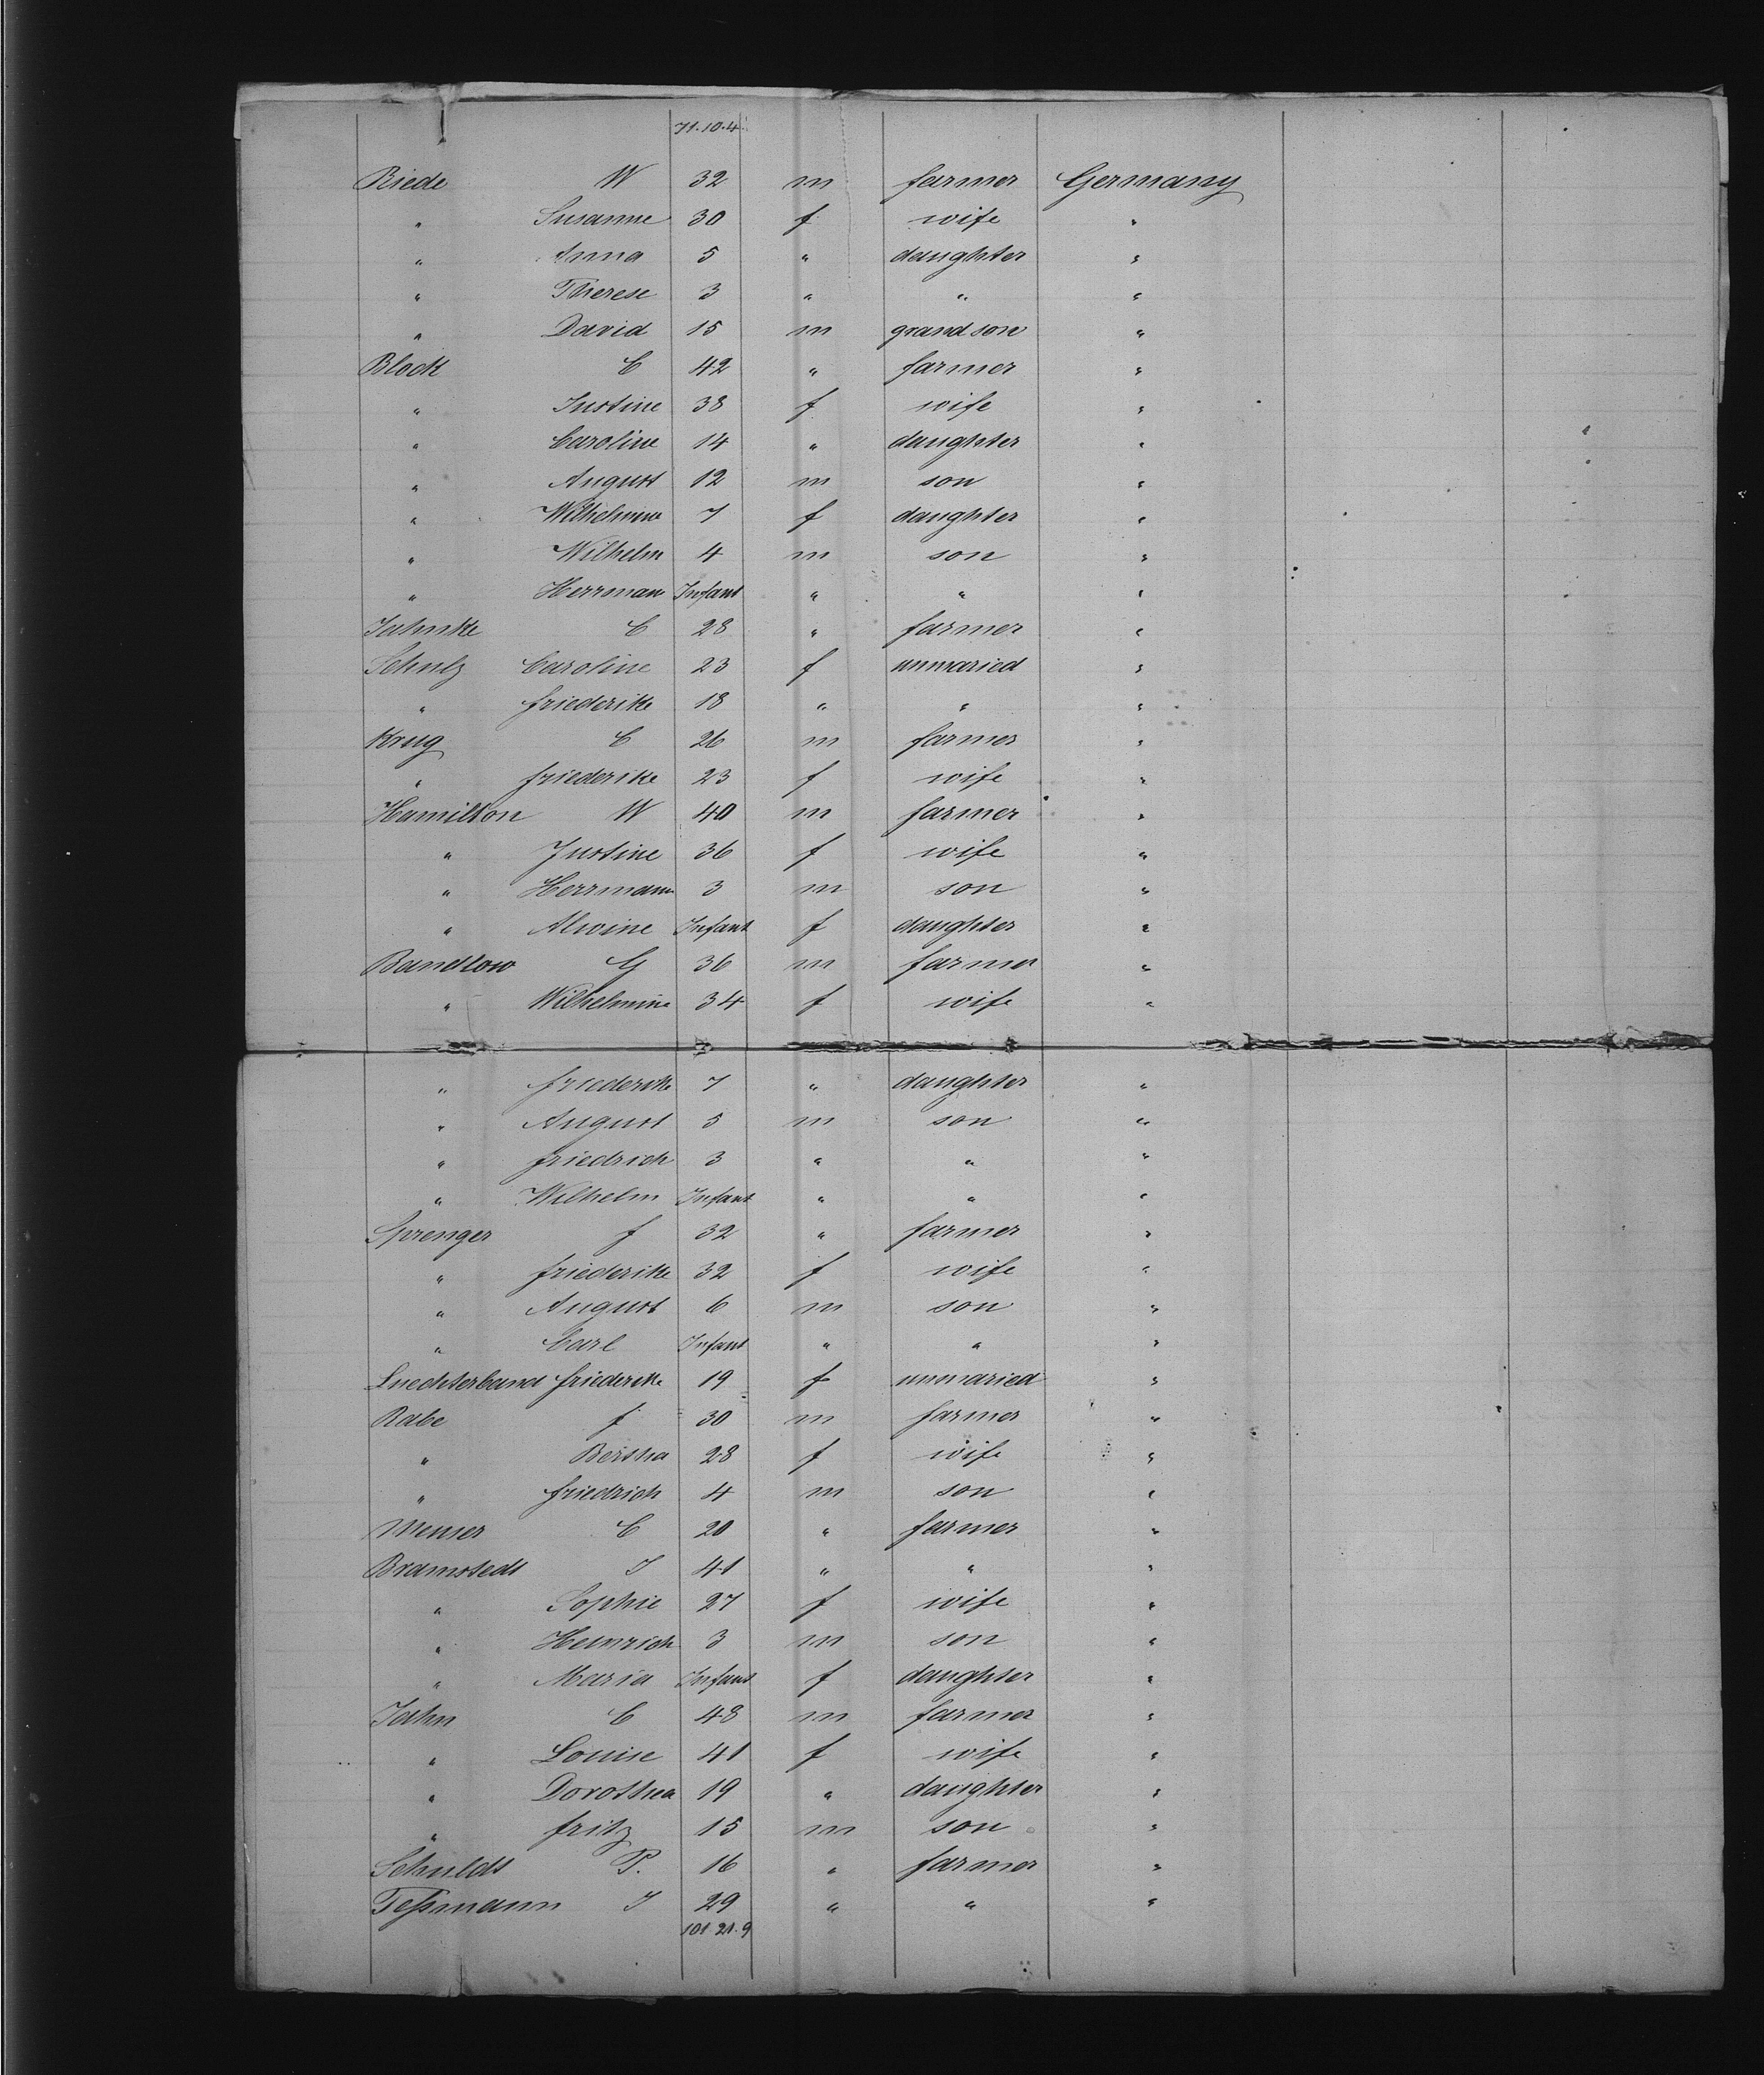 71.10.4.
Riede W 32 m farmer Germany
" Susanne 30 f wife "
" Anna 5 " daughter "
" Therese 3 " " "
" David 15 m grandson "
Block C 42 " farmer "
" Justine 38 f wife "
" Caroline 14 " daughter "
" August 12 m son "
" Wilhelmine 7 f daughter "
" Wilhelm 4 m son "
" Herrman Infant " " "
Jahnke C 28 " farmer "
Schulz Caroline 23 f unmaried "
" friederike 18 " " "
Krug C 26 m farmer "
" friederike 23 f wife "
Hamilton W 40 m farmer "
" Justine 36 f wife "
" Herrmann 3 m son "
" Alwine Infant f daughter "
Bandlow G 36 m farmer "
" Wilhelmine 34 f wife "
" friederike 7 " daughter "
" August 5 m son "
" friedrich 3 " " "
" Wilhelm Infant " " "
Sprenger f 32 " farmer "
" friederike 32 f wife "
" August 6 m son "
" Carl Infant " " "
Luechterband friederike 19 f unmaried "
Rabe f 30 m farmer "
" Bertha 28 f wife "
" friedrich 4 m son "
C 20 " farmer "
Bramstedt J 41 " " "
" Sophie 27 f wife "
" Heinrich 3 m son "
" Maria Infant f daughter "
Jahn C 48 m farmer "
" Louise 41 f wife "
" Dorothea 19 " daughter "
" fritz 15 m son "
Schuldt P. 16 " farmer "
Teßmann J 29 " " "
101.21.9